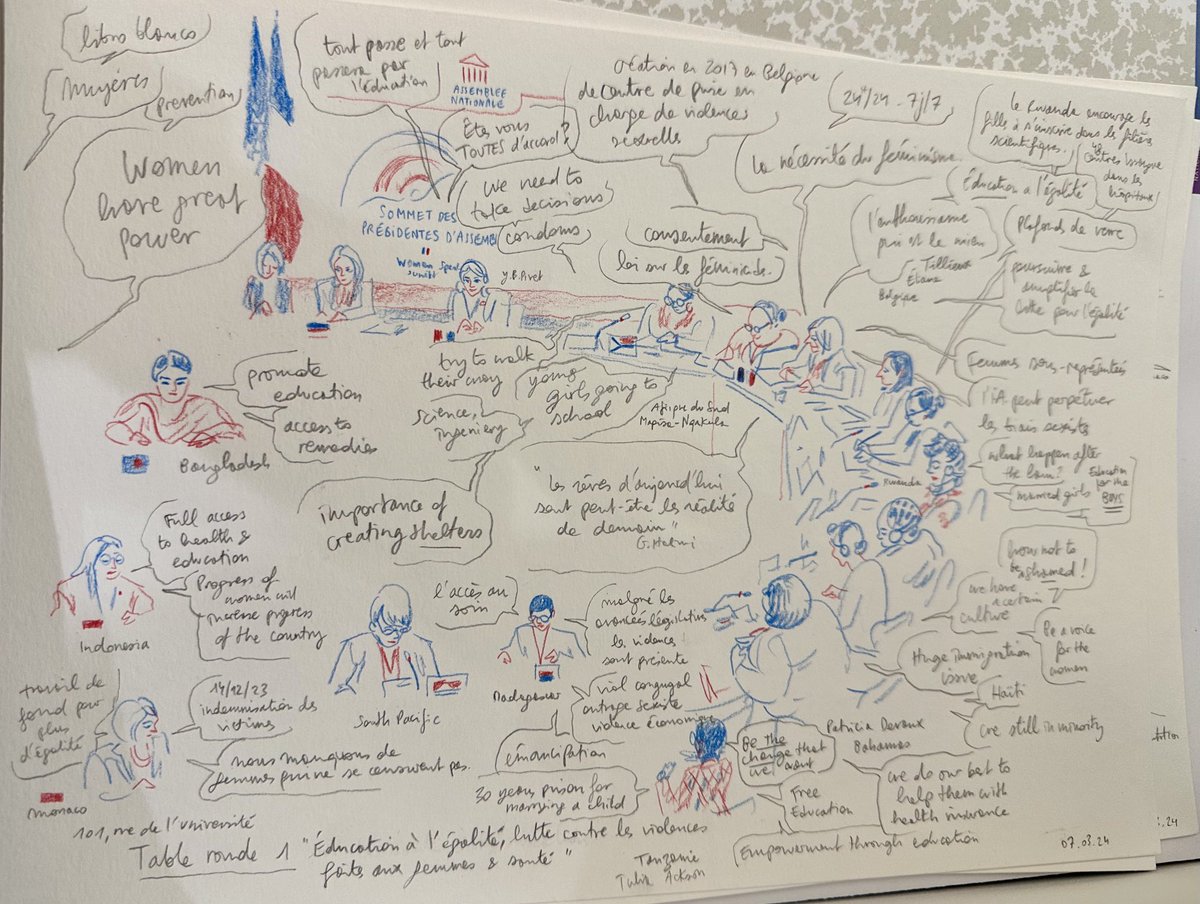 libros blancos
Mujéres
prevention
Women
have great
power
tout passe et tout
passera par
l'éducation
ASSEMBLÉE
NATIONALE
Êtes vous
TOUTES d'accord?
We need to
take decisions
condoms
SOMMET DES
PRÉSIDENTES D'ASSEMB
Women Speakers
summit
Y.B. Pivet
création en 2017 en Belgique
de centre de prise en
charge de violences
sexuelles
24h/24 - 7j/7
Le Rwanda encourage les
filles à s'inscrire dans les filières
scientifiques.
centres
dans les
hôpitaux
La nécessité du féminisme.
Éducation à l'égalité
consentement
loi sur les féminicides.
l'enthousiasme
qui est le mien
Tillieux
Éliane
Belgique
plafonds de verre
poursuivre &
amplifier la
lutte pour l'égalité
Femmes sous-représentés
l'IA peut perpétuer
les biais sexistes
what happen after
the law?
married girls
Education
for the
BOYS
try to walk
their way
science,
ingeniery
young
girls going to
school
Afrique du Sud
Mapisa-Nqakula
promote
education
access to
remedies
Bangladesh
importance of
creating shelters
"Les rêves d'aujourd'hui
sont peut-être les réalité
de demain"
G. Halimi
Rwanda
Full access
to health &
education
Progress of
women will
increase progress
of the country
Indonesia
l'accès au
soin
South Pacific
Madagascar
malgré les
avancées législatives
les violences
sont présente
viol conjugal
outrage sexiste
violence économique
émancipation
how not to
be ashamed!
we have
a certain
culture
Be a voice
for the
women
Huge immigration
issue
Haïti
are still in minority
Patricia Deveaux
Bahamas
we do our best to
help them with
health insurance
travail de
fond pour
plus
d'égalité
14/12/23
indemnisation des
victimes
nous manquons de
femmes qui ne se censurent pas.
Monaco
30 years prison for
marrying a child
Be the
change that
we want
Free
Education
Empowerment through education
Tanzanie
Tulia Ackson
101, rue de l'université
Table ronde 1 "Éducation à l'égalité, lutte contre les violences
faites aux femmes & santé"
07.03.24